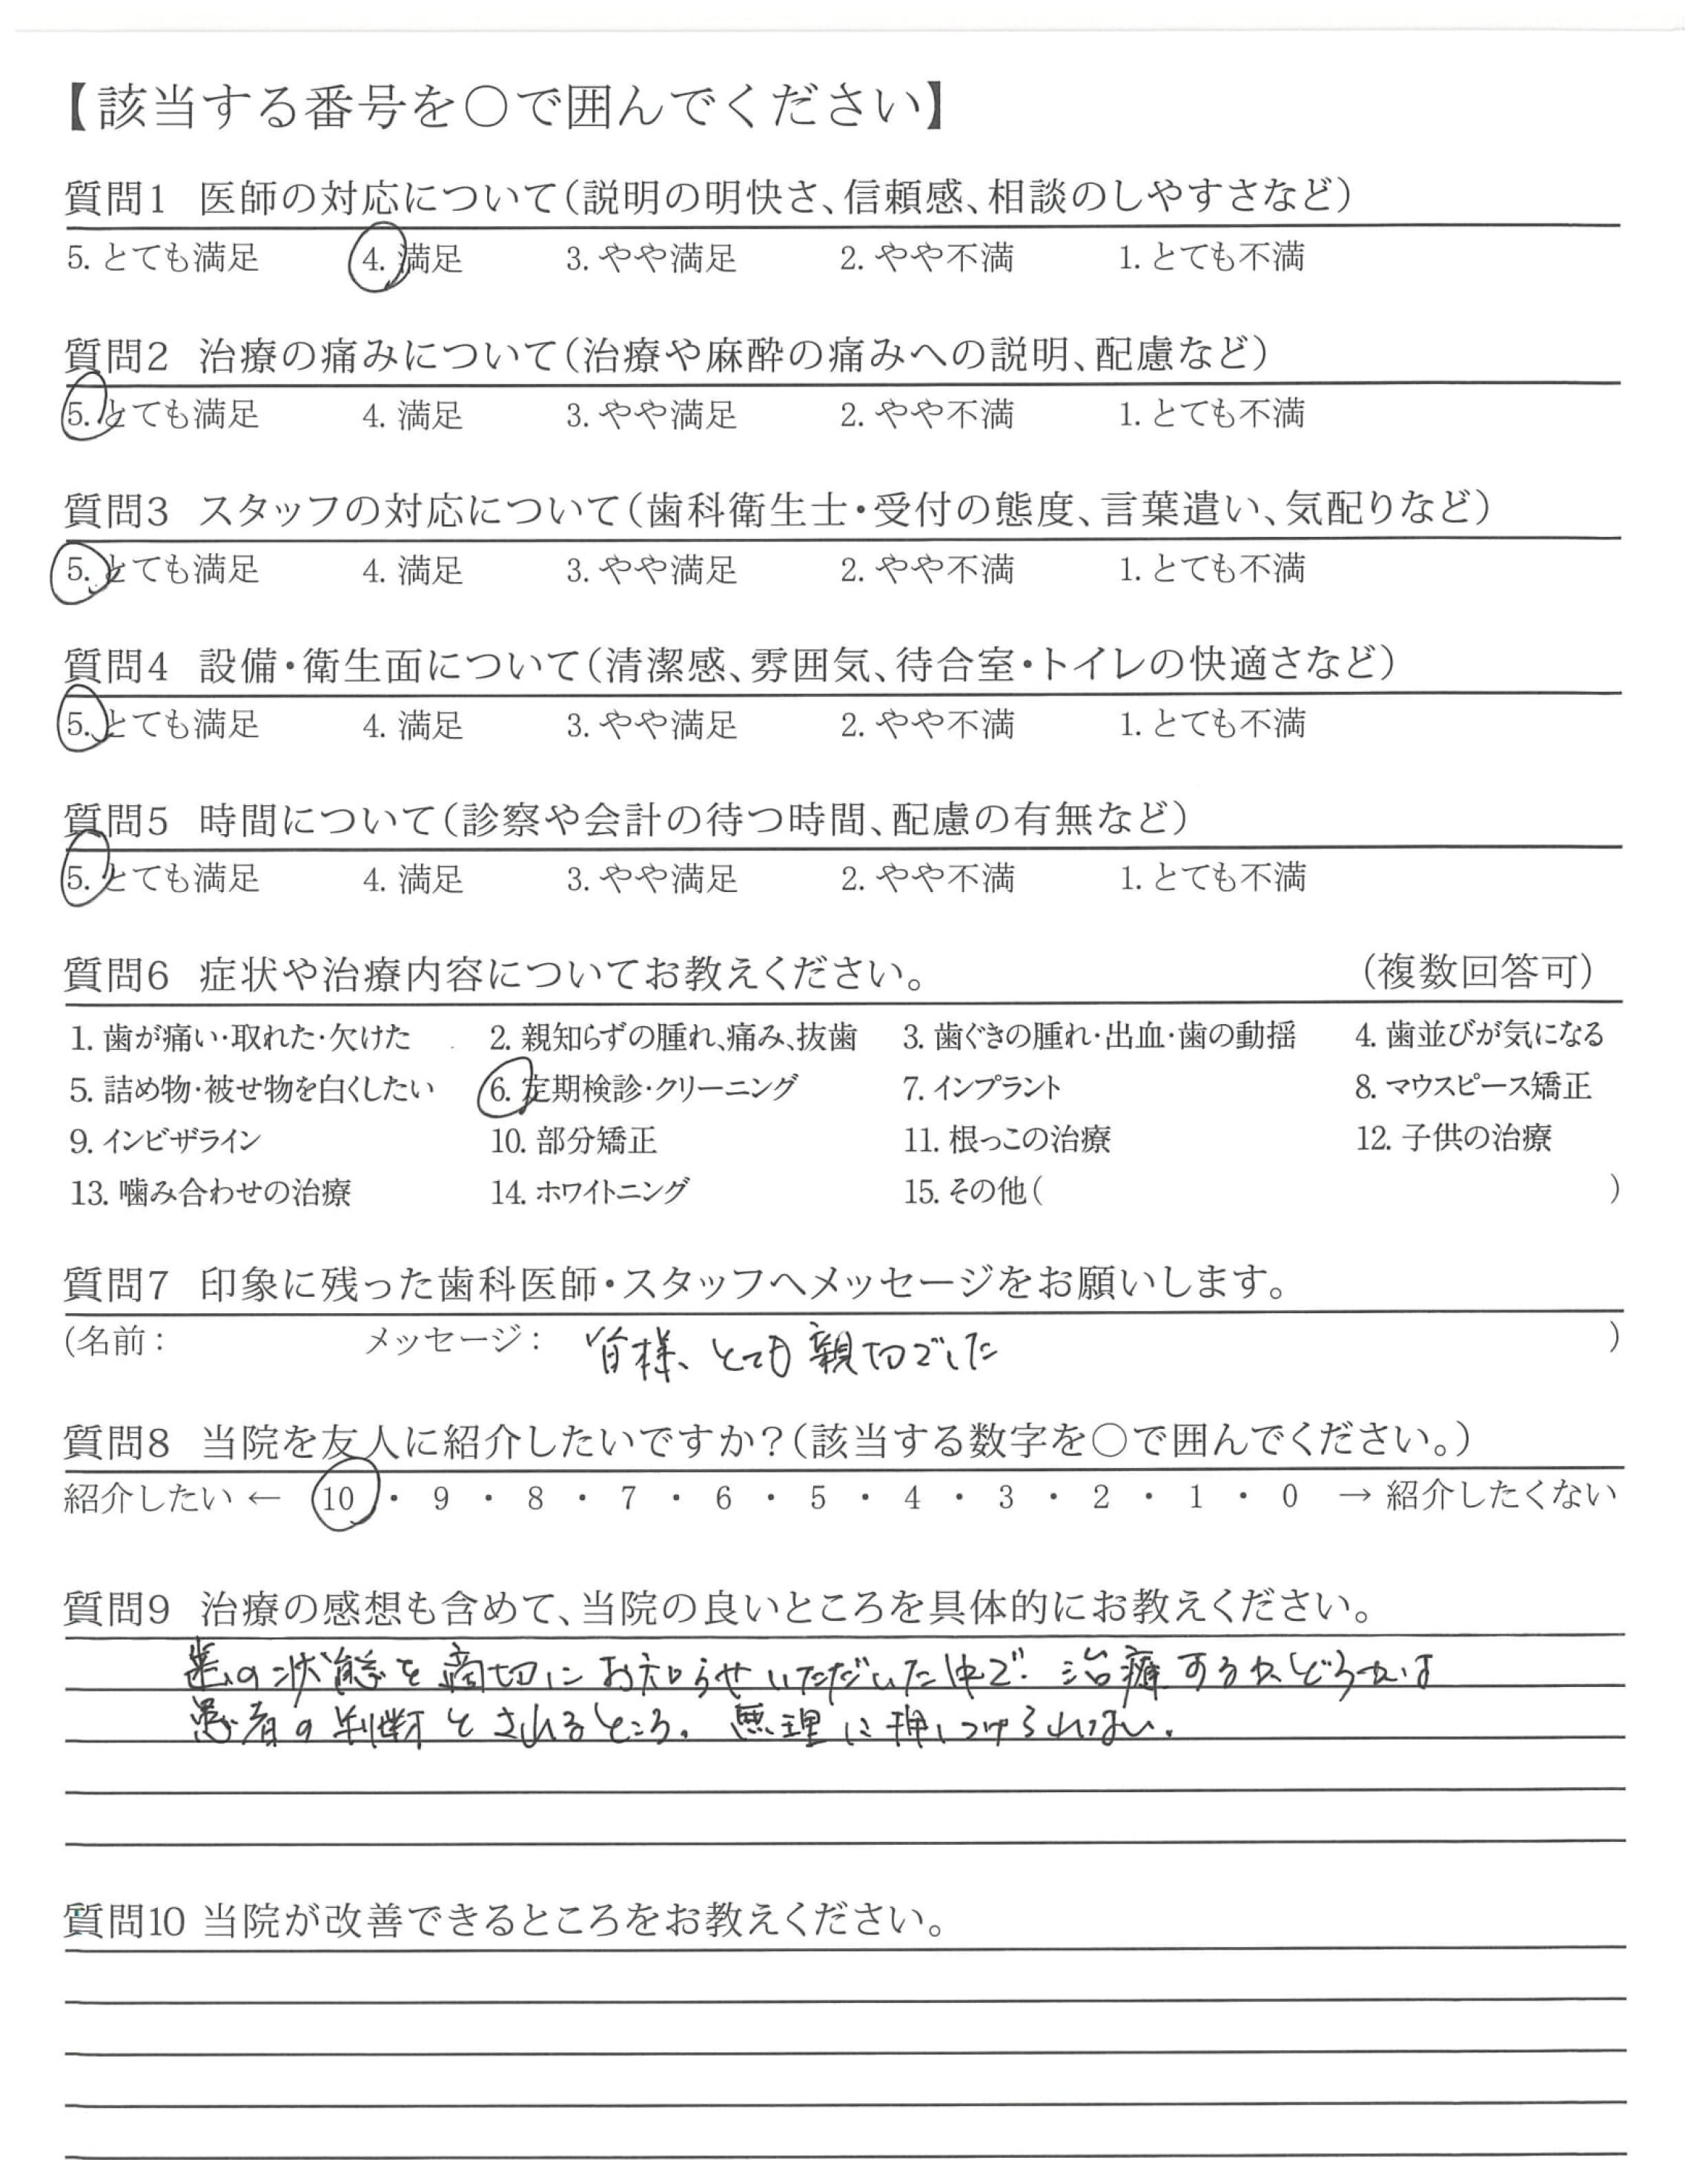 【該当する番号を○で囲んでください】
質問1 医師の対応について（説明の明快さ、信頼感、相談のしやすさなど）
5. とても満足 4. 満足 3. やや満足 2. やや不満 1. とても不満
質問2 治療の痛みについて（治療や麻酔の痛みへの説明、配慮など）
5. とても満足 4. 満足 3. やや満足 2. やや不満 1. とても不満
質問3 スタッフの対応について（歯科衛生士・受付の態度、言葉遣い、気配りなど）
5. とても満足 4. 満足 3. やや満足 2. やや不満 1. とても不満
質問4 設備・衛生面について（清潔感、雰囲気、待合室・トイレの快適さなど）
5. とても満足 4. 満足 3. やや満足 2. やや不満 1. とても不満
質問5 時間について（診察や会計の待つ時間、配慮の有無など）
5. とても満足 4. 満足 3. やや満足 2. やや不満 1. とても不満
質問6 症状や治療内容についてお教えください。 （複数回答可）
1. 歯が痛い・取れた・欠けた 2. 親知らずの腫れ、痛み、抜歯 3. 歯ぐきの腫れ・出血・歯の動揺 4. 歯並びが気になる
5. 詰め物・被せ物を白くしたい 6. 定期検診・クリーニング 7. インプラント 8. マウスピース矯正
9. インビザライン 10. 部分矯正 11. 根っこの治療 12. 子供の治療
13. 噛み合わせの治療 14. ホワイトニング 15. その他（ ）
質問7 印象に残った歯科医師・スタッフへメッセージをお願いします。
（名前： メッセージ： 皆様、とても親切でした ）
質問8 当院を友人に紹介したいですか？（該当する数字を○で囲んでください。）
紹介したい ← 10 ・ 9 ・ 8 ・ 7 ・ 6 ・ 5 ・ 4 ・ 3 ・ 2 ・ 1 ・ 0 → 紹介したくない
質問9 治療の感想も含めて、当院の良いところを具体的にお教えください。
歯の状態を適切にお知らせいただいた中で、治療するかどうかは
患者の判断とされるところ。無理に押しつけられない。
質問10 当院が改善できるところをお教えください。